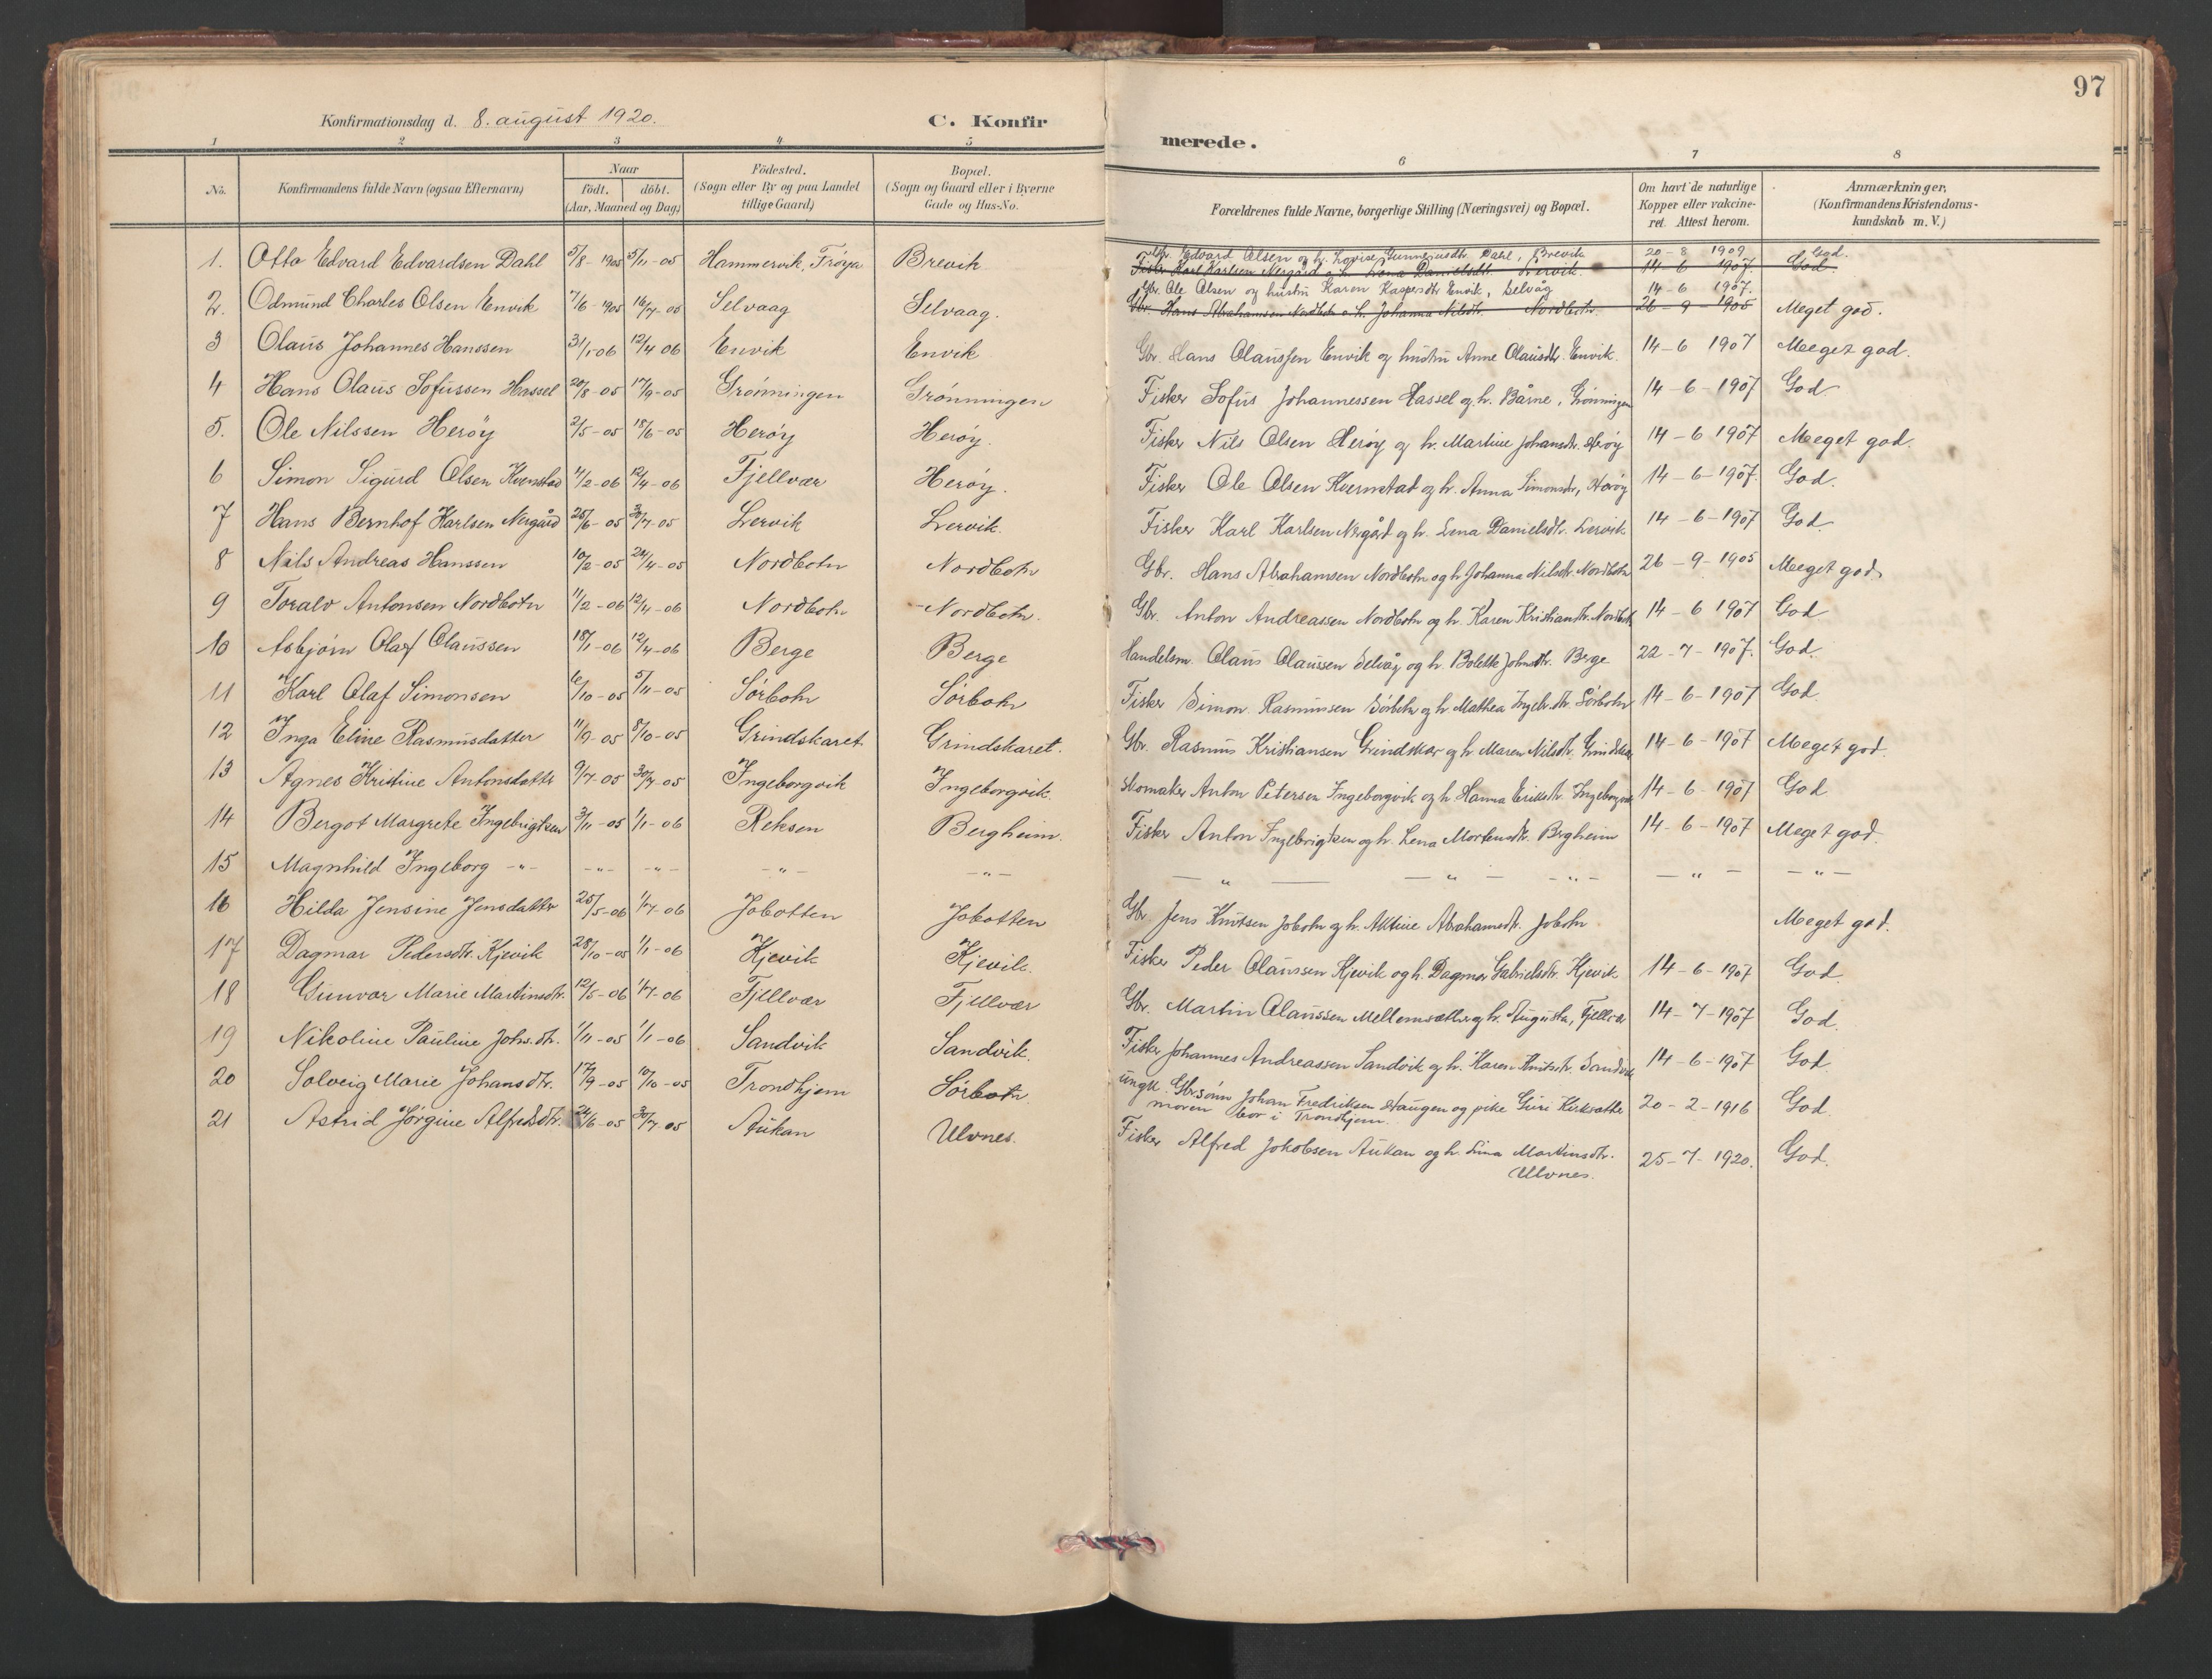 97
Konfirmationsdag d. 8. august 1920.
C. Konfirmerede.
1 2 3 4 5 6 7 8
No. Konfirmandens fulde Navn (ogsaa Efternavn) Naar født. døbt. (Aar, Maaned og Dag) Födested. (Sogn eller By og paa Landet tillige Gaard) Bopæl. (Sogn og Gaard eller i Byerne Gade og Hus-No. Forældrenes fulde Navne, borgerlige Stilling (Næringsvei) og Bopæl. Om havt de naturlige Kopper eller vakcineret. Attest herom. Anmærkninger, (Konfirmandens Kristendomskundskab m. V.)
1. Otto Edvard Edvardsen Dahl 5/8-1905 5/11-05 Hammervik, Frøya Brevik Gbr. Edvard Olsen og h. Lovise Gunnerusdtr. Dahl, Brevik 20-8 1909 God.
Fisker Karl Karlsen Nergård og h. Lena Danielsdtr. Lervik 14-6 1907. God
2. Odmund Charles Olsen Envik 7/6-1905 16/7-05 Selvaag Selvaag. Gbr. Ole Olsen og hustru Karen Kaspersdtr Envik, Selvåg 14-6 1907.
Gbr. Hans Abrahamsen Nordbotn o. h. Johanna Nilsdtr. Nordbotn 26-9-1905 Meget god.
3 Olaus Johannes Hanssen 31/1 06 12/4 06 Envik Envik Gbr. Hans Olaussen Envik og hustru Anne Olausdtr. Envik. 14-6 1907 Meeget god.
4 Hans Olaus Sofussen Hassel 20/8-05 17/9-05 Grønningen Grønningen Fisker Sofus Johannessen Hassel og h. Bårne, Grønningen 14-6-1907 God
5. Ole Nilssen Herøy 2/5-05 18/6-05 Herøy Herøy. Fisker Nils Olsen Herøy og h. Martine Johansdtr. Herøy 14-6 1907 Meeget god.
6 Simon Sigurd Olsen Kvernstad 11/2-06 12/4-06 Fjellvær Herøy. Fisker Ole Olsen Kvernstad og h. Anna Simonsdtr, Herøy 14-6-1907. God.
7 Hans Bernhof Karlsen Nergård 25/6-05 30/7-05 Lervik Lervik. Fisker Karl Karlsen Nergård og h. Lena Danielsdtr. Lervik 14-6-1907 God
8 Nils Andreas Hanssen 10/2-05 24/4-05 Nordbotn Nordbotn Gbr. Hans Abrahamsen Nordbotn og h Johanna Nilsdtr. Nordbotn 26-9-1905 Meeget god.
9 Toralv Antonsen Nordbotn 11/2-06 12/4-06 Nordbotn Nordbotn. Gbr. Anton Andreassen Nordbotn og h. Karen Kristiansdtr. Nordbotn 14-6 1907 God
10 Asbjørn Olaf Olaussen 18/1-06 12/4-06 Berge Berge Handelsm. Olaus Olaussen Selvåg og h. Bolette Johnsdtr. Berge 22-7-1907. God.
11 Karl Olaf Simonsen 6/10-05 5/11-05 Sørbotn Sørbotn Fisker Simon Rasmussen Sørbotn og h. Mathea Ingebr.dtr. Sørbotn 14-6-1907 God
12 Inga Eline Rasmusdatter 11/9-05 8/10-05 Grindskaret. Grindskaret. Gbr. Rasmus Kristiansen Grindskar og h Maren Nilsdtr. Grindskar 14-6-1907 Meeget god.
13 Agnes Kristine Antonsdatter 9/7-05 30/7-05 Ingeborgvik Ingeborgvik. Skomaker Anton Petersen Ingeborgvik og h. Hanna Eriksdtr. Ingeborgvik 14-6-1907 God
14 Bergot Margrete Ingebrigtsen 3/11-05 1/1-06 Reksen Bergheim. Fisker Anton Ingebrigtsen og h. Lena Mortensdtr. Bergheim 14-6-1907 Meget god.
15 Magnhild Ingeborg -"- -"- -"- -"- -"- — " — — " — -"- — " — — " —
16 Hilda Jensine Jensdatter 25/5-06 1/7-06 Jobotten Jobotten Gbr. Jens Knutsen Jobotn og h. Aktine Abrahamsdtr. Jobotn Meeget god.
17 Dagmar Pedersdtr. Kjevik 28/10-05 1/1-06 Kjevik Kjevik. Fisker Peder Olaussen Kjevik og h. Dagmar Gabrielsdtr. Kjevik 14-6-1907 God
18 Gunvor Marie Martinsdtr. 12/5-06 1/7-06 Fjellvær Fjellvær Gbr. Martin Olaussen Mellemsæther og h. Augusta, Fjellvær 14-7-1907 God.
19 Nikoline Pauline Johs.dtr. 1/11-05 1/1-06 Sandvik Sandvik. Fisker Johannes Andreassen Sandvik og h. Karen Knutsdtr. Sandvik 14-6-1907 God.
20 Solveig Marie Johansdtr. 17/9-05 10/10-05 Trondhjem Sørbotn. ungk. Gbr.sønn Johan Fredriksen Haugen og pike Guri Kirksæther 20-2-1916 God.
moren bor i Trondhjem.
21 Astrid Jørgine Alfredsdtr. 24/6-05 30/7 05 Aukan Ulvnes. Fisker Alfred Jakobsen Aukan og h. Lina Martinsdtr. 25-7-1920. God.
Ulvnes.